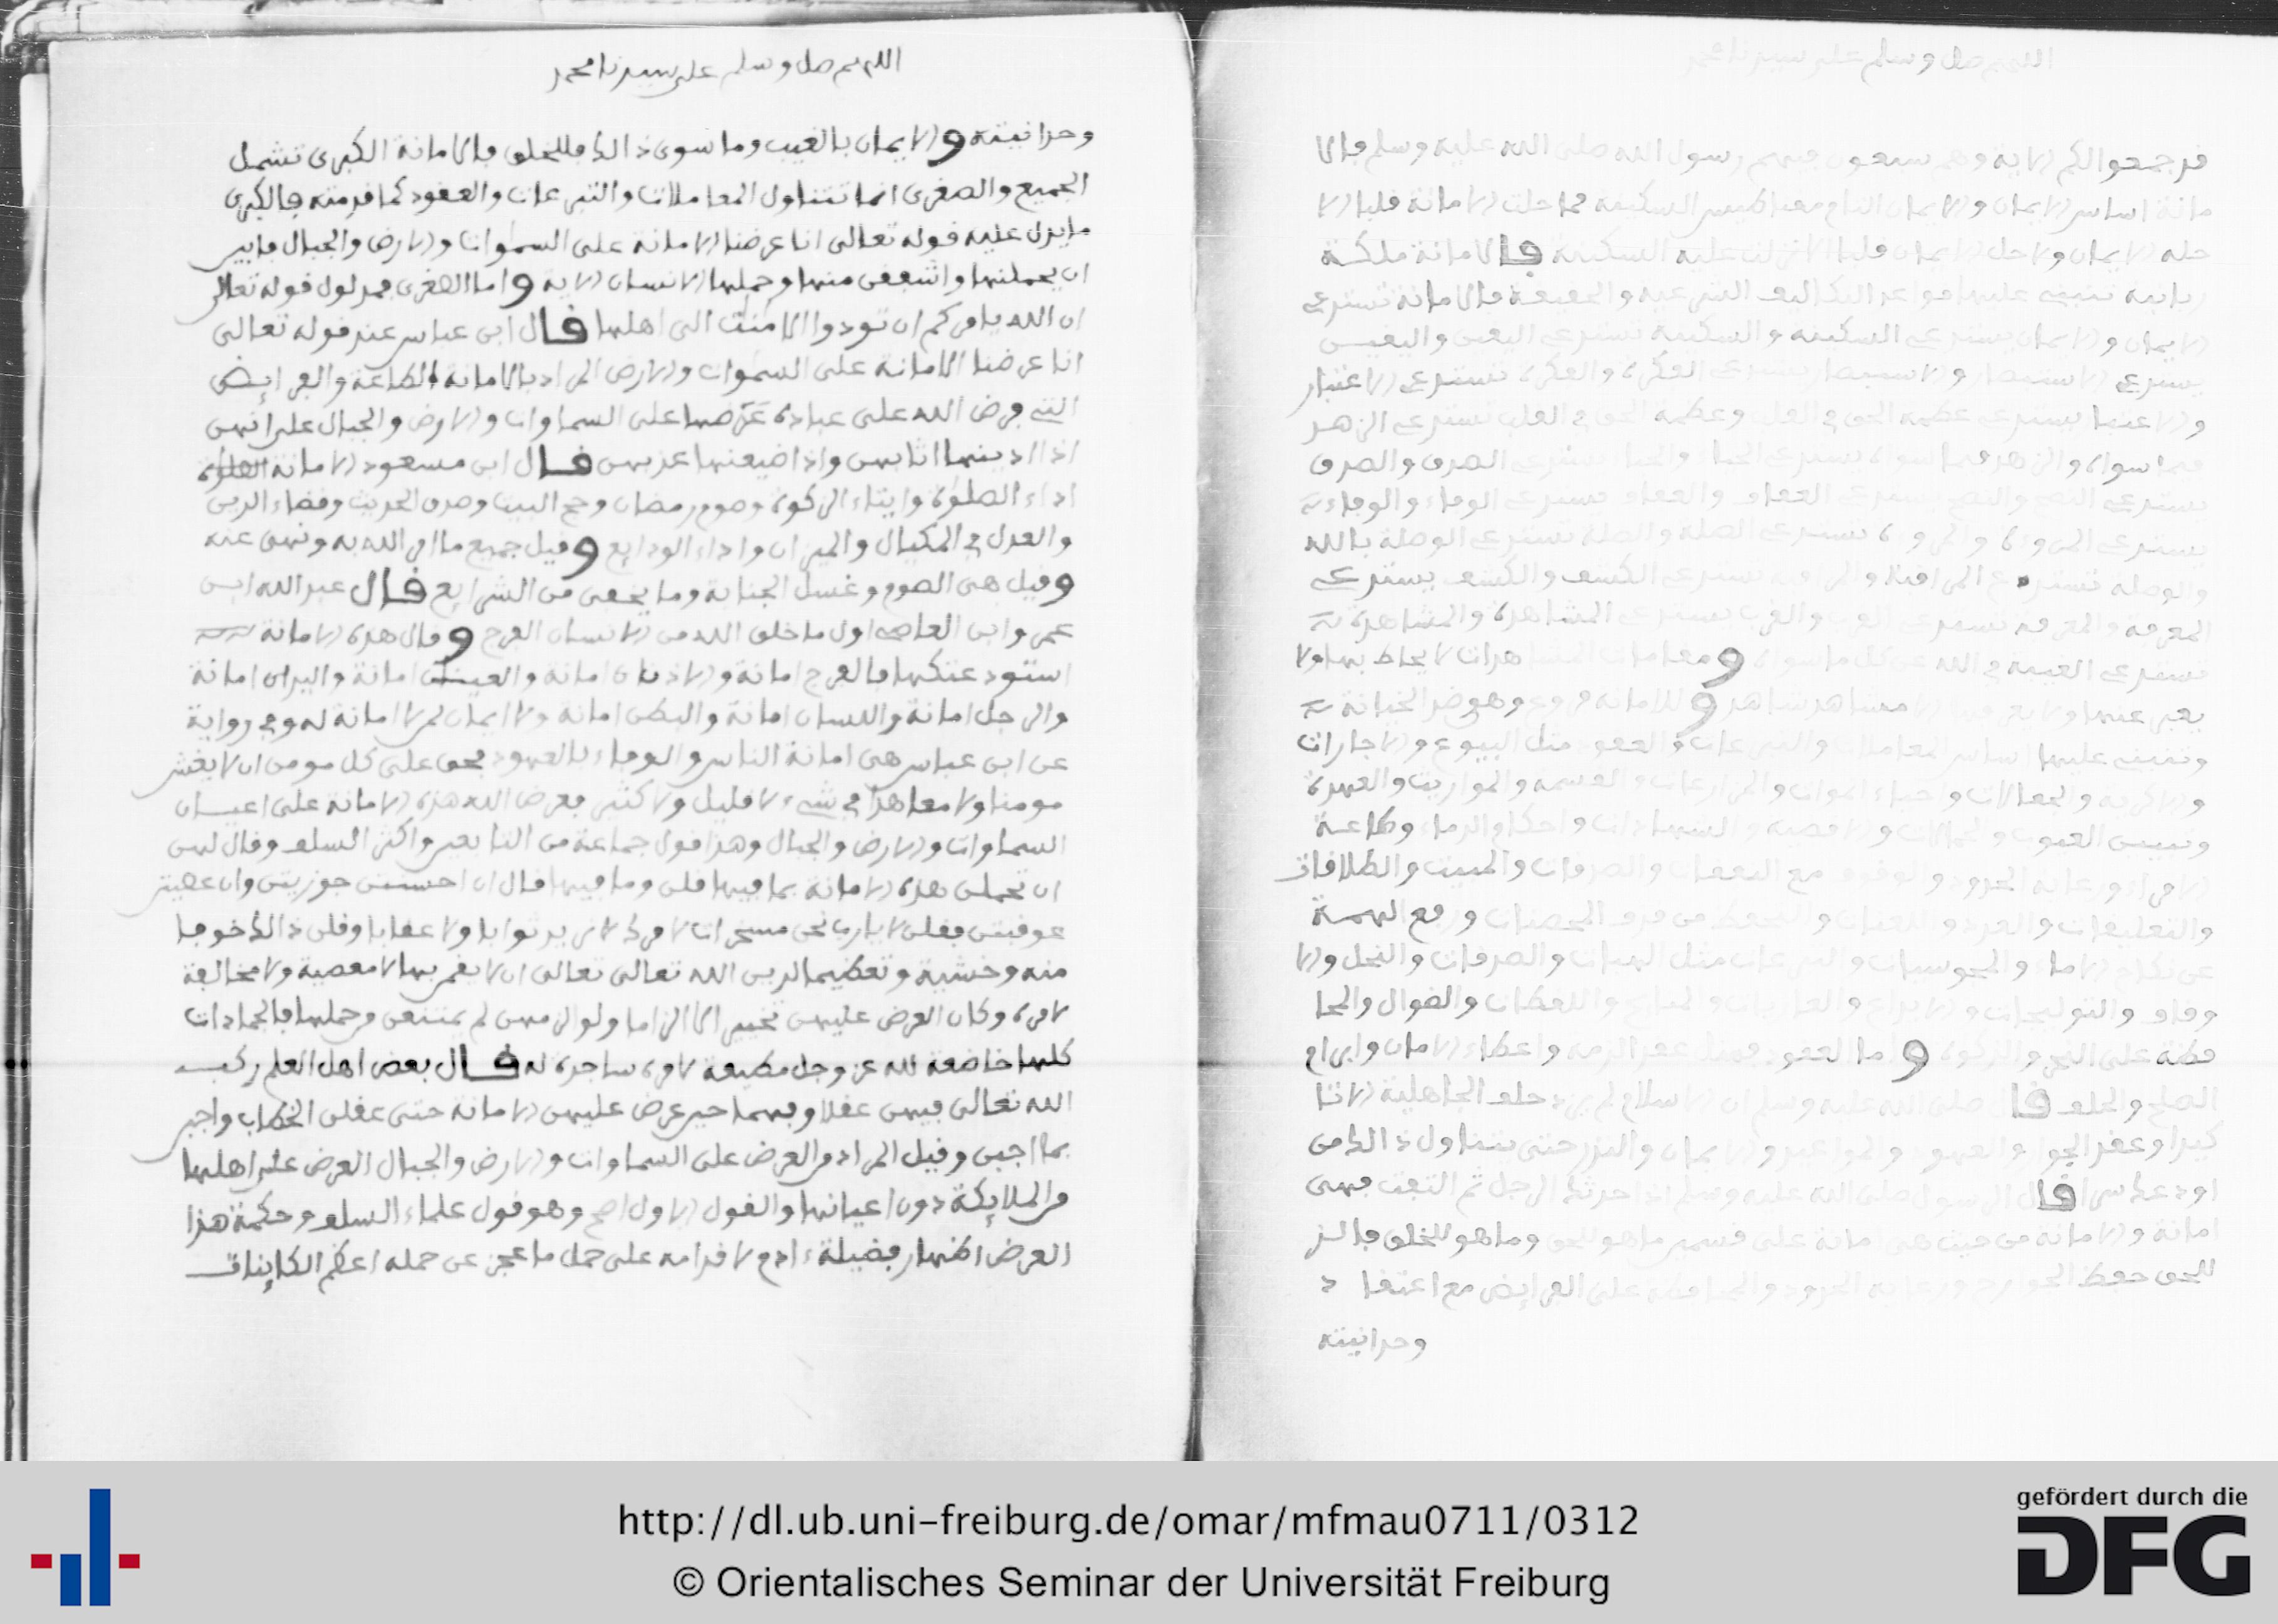 اللهم صل وسلم على سيدنا محمد
قد جمعوا لكم الاية وهم سبعون فيهم رسول الله صلى الله عليه وسلم فالا
مانة اساس الايمان والايمان السكينة فما حلت الامانة قلبا الا
حله الايمان ولا حل الايمان قلبا الا نزلت عليه السكينة فالامانة ملكة
ربانية تنبني عليها قواعد التكاليف الشرعية والحقيقة فالامانة تستدعي
الايمان والايمان يستدعي السكينة والسكينة تستدعي اليقين واليقين
يستدعي الاستبصار والاستبصار يستدعي الفكرة والفكرة تستدعي الاعتبار
والاعتبا يستدعي عظمة الحق في القلب وعظمة الحق في القلب تستدعي الزهد
فيما سواه والزهد فيما سواه يستدعي الحياء والحياء يستدعي الصدق والصدق
يستدعي النصح والنصح يستدعي العفاف والعفاف يستدعي الوفاء والوفاء
يستدعي المروءة والمروءة تستدعي الصلة والصلة تستدعي الوصلة بالله
والوصلة تستدعي المراقبة والمراقبة تستدعي الكشف والكشف يستدعي
المعرفة والمعرفة تستدعي القرب والقرب يستدعي المشاهدة والمشاهدة
تستدعي الغيبة في الله عن كل ما سواه ومقامات المشاهدات لا يحاط بها ولا
يعبر عنها ولا يعرف الا مشاهد شاهد وللامانة فروع وهو ضد الخيانة
وتنبني عليها اساس المعاملات والتبرعات والعقود مثل البيوع والاجارات
والاكرية والجعالات واحياء الموات والمزارعات والقسمة والمواريث والعهدة
وتبيين العيوب والاقضية والشهادات واحكام الدماء وطاعة
الامراء ورعاية الحدود والوقوف مع النفقات والصدقات والمبيت والطلاقات
والتعليقات والعدد واللعان والتحفظ من قذف المحصنات ورفع التهمة
عن نكاح الاماء والمجوسيات والتبرعات مثل الهبات والصدقات والنحل والا
وقاف والتوليجات والايداع والعاريات واللقطات والضوال والمحا
فظة على الزكوة واما العقود فمثل عقد الذمة واعطاء الامان وابرام
الصلح والحلف قال صلى الله عليه وسلم ان الاسلام لم يزد حلف الجاهلية الا تا
كيدا وعقد الجوار والعهود والمواعيد والايمان والنذر حتى يتناول ذالك من
اودعك سرا قال الرسول صلى الله عليه وسلم اذا حدثك الرجل ثم التفت فهي
امانة والامانة من حيث هي امانة على قسمين ما هو للحق وما هو للخلق فالذ
للحق حفظ الجوارح ورعاية الحدود والمحافظة على الفرايض مع اعتقا د
وحدانيته
اللهم صل وسلم على سيدنا محمد
وحدانيته والايمان بالغيب وما سوى ذالك فللخلق فالامانة الكبرى تشمل
الجميع والصغرى انما تتناول المعاملات والتبرعات والعقود كما قدمته فالكبرى
ما يدل عليه قوله تعالى انا عرضنا الامانة على السموات والارض والجبال فابين
ان يحملنها واشفقن منها وحملها الانسان الاية واما الصغرى فمدلول قوله تعالى
ان الله يامركم ان تودوا الامنت الى اهلها قال ابن عباس عند قوله تعالى
انا عرضنا الامانة على السموات والارض المراد بالامانة الطاعة والفرايض
التي فرض الله على عباده عرضها على السماوات والارض والجبال على انهن
اذا ادينها اثابهن واذا ضيعنها عذبهن قال ابن مسعود الامانة الصلوة
اداء الصلوة وايتاء الزكوة وصوم رمضان وحج البيت وصدق الحديث وقضاء الدين
والعدل في المكيال والميزان واداء الودايع وقيل جميع ما امر الله به ونهى عنه
وقيل هى الصوم وغسل الجنابة وما يخفى من الشرايع قال عبد الله ابن
عمر وابن العاصى اول ما خلق الله من الانسان الفرج وقال هذه الامانة
استودعتكها فالفرج امانة والاذنان امانة والعينان امانة واليدان امانة
والرجل امانة واللسان امانة والبطن امانة ولا ايمان لمن لا امانة له وفي رواية
عن ابن عباس هى امانة الناس والوفاء بالعهود فحق على كل مومن ان لا يغش
مومنا ولا معاهدا في شيء لا قليل ولا كثير فعرض الله هذه الامانة على اعيان
السماوات والارض والجبال وهذا قول جماعة من التابعين واكثر السلف وقال لهن
ان تحملن هذه الامانة بما فيها قلن وما فيها قال ان احسنتن جوزيتن وان عصيتن
عوقبتن فقلن لا يارب نحن مسخرات لامرك لا نريد ثوابا ولا عقابا وقلن ذالك خوفا
منه وخشية وتعظيما لدين الله تعالى تعالى ان لا يقمن بها لا معصية ولا مخالفة
لامره وكان العرض عليهن تخييرا لا الزاما ولو الزمهن لم يمتنعن من حملها فالجمادات
كلها خاضعة لله عز وجل مطيعة لامره ساجدة له قال بعض اهل العلم ركب
الله تعالى فيهن عقلا وفهما حين عرض عليهن الامانة حتى عقلن الخطاب واجبن
بما اجبن وقيل المراد من العرض على السماوات والارض والجبال العرض على اهلها
من الملايكة دون اعيانها والقول الاول اصح وهو قول علماء السلف وحكمة هذا
العرض اظهار فضيلة ءادم لاقدامه على حمل ما عجز عن حمله اعظم الكاينات
http://dl.ub.uni-freiburg.de/omar/mfmau0711/0312
© Orientalisches Seminar der Universität Freiburg
gefördert durch die
DFG